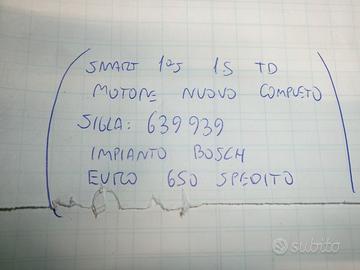 SMART 125 1S TD
MOTORE NUOVO COMPLETO
SIGLA: 639939
IMPIANTO BOSCH
EURO 650 SPEDITO
subito